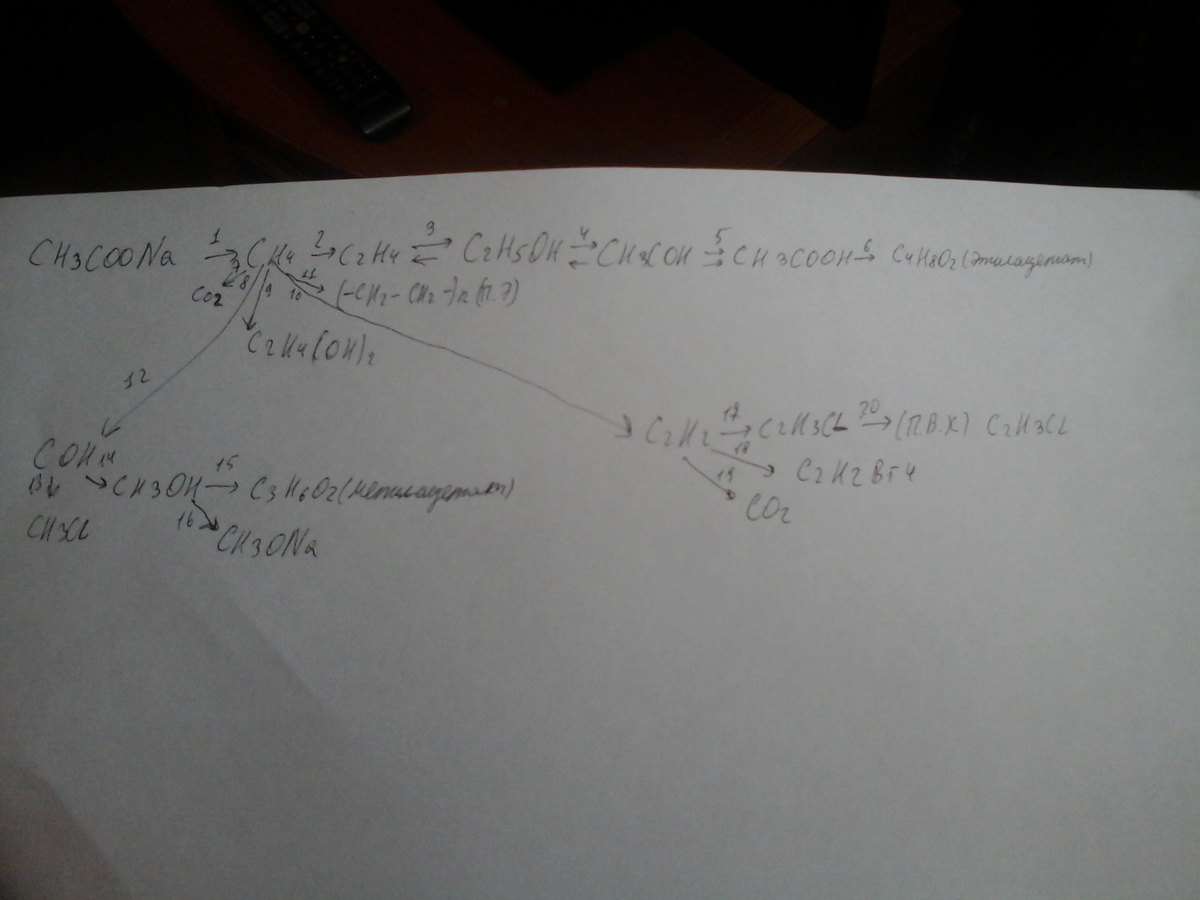 CH3COONa 1→ CH4 2→ C2H4 3⇄ C2H5OH 4⇄ CH3COH 5⇉ CH3COOH 6→ C4H8O2 (этилацетат)
CO2 8 9 10 11 (-CH2-CH2-)n (П.Э)
C2H4(OH)2
12
C2H2 17→ C2H3CL 20→ (ПВХ) C2H3CL
COH 14
18
13↓ → CH3OH 15→ C3H6O2 (метилацетат)
19 C2H2Br4
CH3CL 16 CH3ONa
CO2